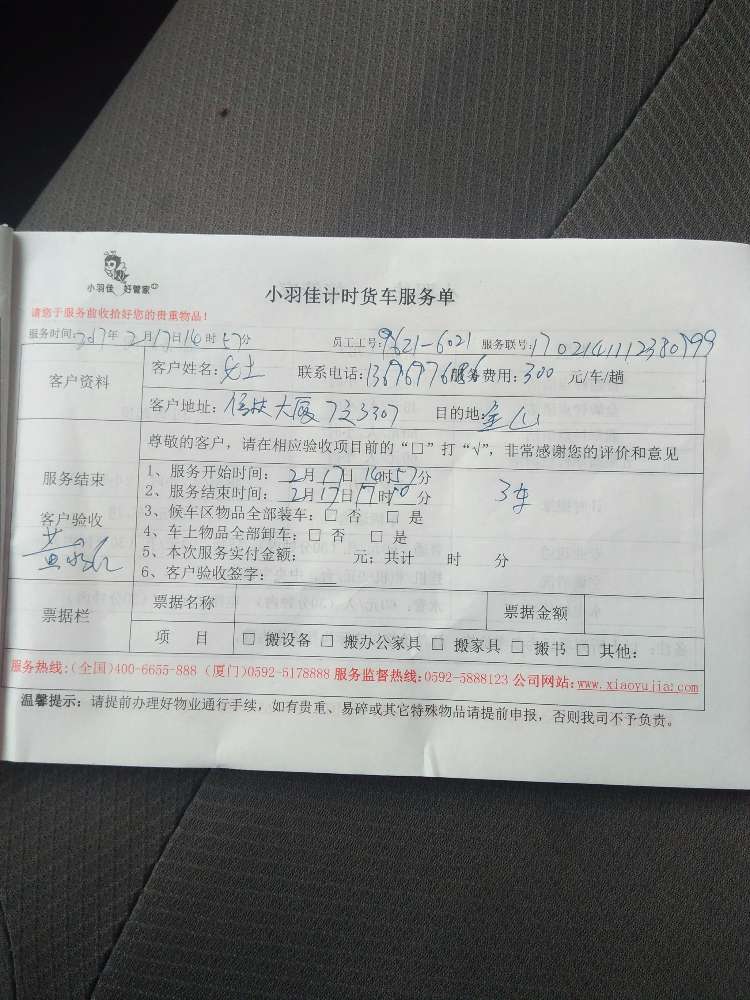 小羽佳 好管家
小羽佳计时货车服务单
请您于服务前收拾好您的贵重物品!
服务时间:2017年2月17日14时57分 员工工号:9621-6021 服务联号:
客户资料
客户姓名:女士 联系电话: 服务费用:300元/车/趟
客户地址: 大厦 3307 目的地:金山
尊敬的客户,请在相应验收项目前的“□”打“√”,非常感谢您的评价和意见
服务结束
客户验收
黄
1、服务开始时间:2月17日14时57分
2、服务结束时间:2月17日17时50分
3车
3、候车区物品全部装车:□ 否 □ 是
4、车上物品全部卸车:□ 否 □ 是
5、本次服务实付金额: 元;共计 时 分
6、客户验收签字:
票据栏
票据名称 票据金额
项 目 □ 搬设备 □ 搬办公家具 □ 搬家具 □ 搬书 □ 其他:
服务热线:(全国)400-6655-888 (厦门)0592-5178888 服务监督热线:0592-5888123 公司网站:www.xiaoyujia.com
温馨提示:请提前办理好物业通行手续,如有贵重、易碎或其它特殊物品请提前申报,否则我司不予负责。